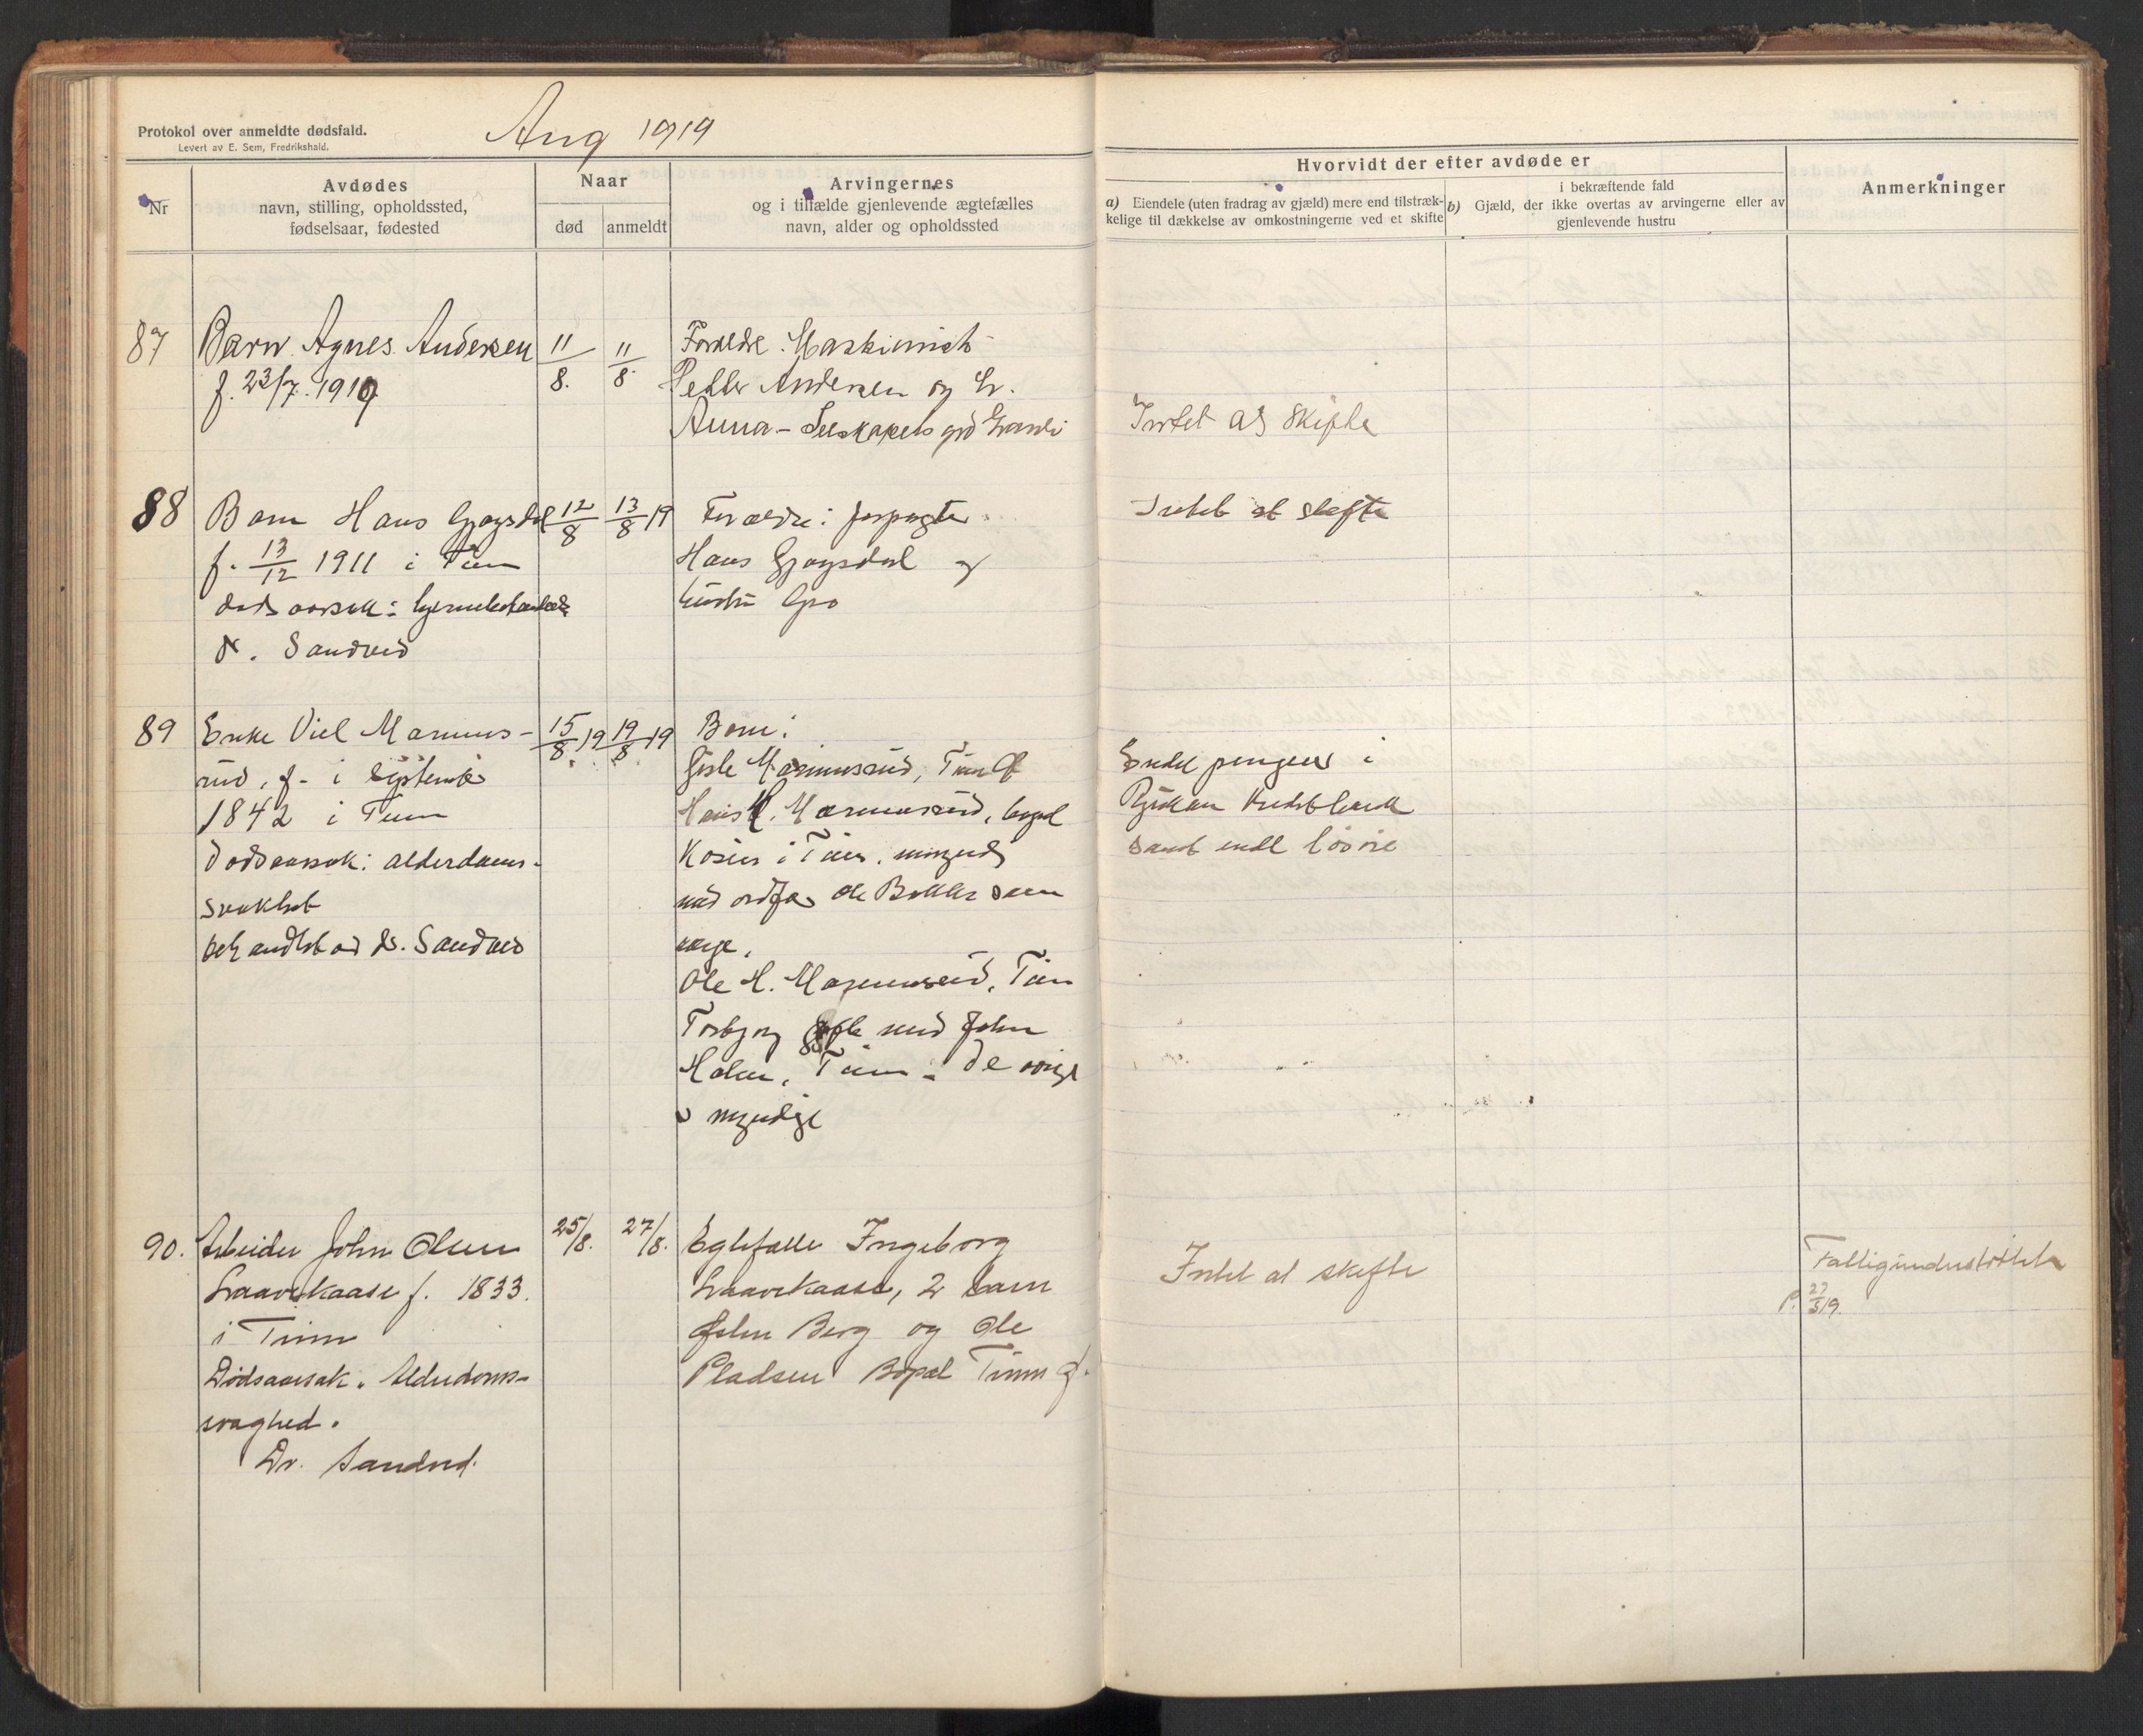 Protokol over anmeldte dødsfald.
Levert av E. Sem, Fredrikshald.
Aug 1919
Nr
Avdødes
navn, stilling, opholdssted,
fødselsaar, fødested
Naar
død
anmeldt
Arvingernes
og i tilfælde gjenlevende ægtefælles
navn, alder og opholdssted
Hvorvidt der efter avdøde er
a) Eiendele (uten fradrag av gjæld) mere end tilstræk-
kelige til dækkelse av omkostningerne ved et skifte
i bekræftende fald
b) Gjæld, der ikke overtas av arvingerne eller av
gjenlevende hustru
Anmerkninger
87
Barn Agnes Andersen
f. 23/7. 1919
11/8.
11/8.
Forældre. Maskinist
Petter Andersen og h.
Anna - Selskapets grd
Intet at skifte
88
Barn Hans Gjøysdal
f. 13/12 1911 i Tinn
dødsaarsak:
dr. Sandved
12/8
13/8 19
Forældre: forpagter
Hans Gjøysdal og
hustru Gro
Intet at skifte
89
Enke Viel Marums-
rud, f. i september
1842 i Tinn
Dødsaarsak: alderdoms-
svakhet
behandlet av dr. Sandved
15/8 19
19/8 19
Barn:
Gisle Marumsrud, Tinn
Hans H. Marumsrud, bopæl
i Tinn, umyndig
med ordfører Ole som
verge.
Ole H. Marumsrud, Tinn
Torbjørg gift med John
Holm, Tinn - De øvrige
er myndige
Endel penger i
Rjukan Kreditbank
samt endel løsøre
90.
Arbeider John Olsen
Laavekaase f. 1833.
i Tinn
Dødsaarsak. Alderdoms-
svaghed.
Dr. Sandved.
25/8.
27/8.
Egtefælle Ingeborg
Laavekaase, 2 barn
John Berg og Ole
Pladsen Bopæl Tinn
Intet at skifte
Fattigunderstøttet